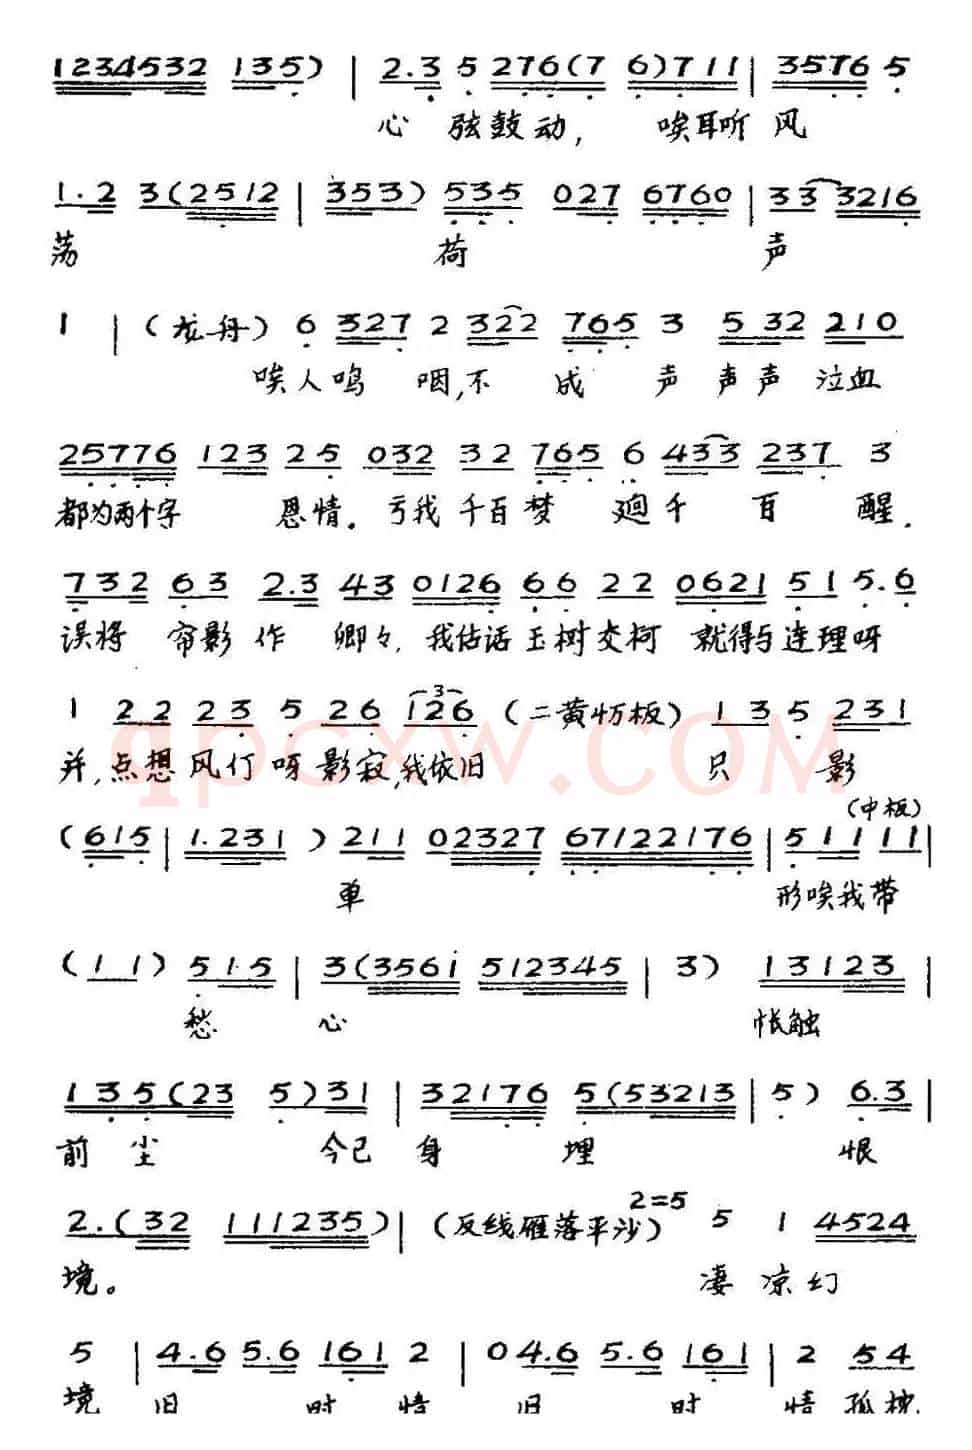 1234532 135) | 2.3 5 276(7 6)711 | 3576 5
心 弦鼓动, 唉耳听 风
1.2 3(2512 | 353) 535 027 6760 | 33 3216
荡 荷 声
1 | (龙舟) 6 327 2 322 765 3 5 32 210
唉人鸣 咽,不 成 声 声声 泣血
25776 123 25 032 32 765 6 433 237 3
都为两个字 恩情。亏我千百梦 廻千 百 醒.
732 63 2.3 43 0126 66 22 0621 51 5.6
误将 帘影作 卿々,我估话玉树交柯 就得与连理呀
1 22 23 5 26 3 126 (二黄慢板) 13 5 231
并,点想风灯呀影寂,我依旧 只 影
qpcxw.com
(中板)
(615 | 1.231 ) 211 02327 67122176 | 51111 |
单 形唉我带
(11) 515 | 3(3561 512345 | 3) 13123 |
愁 心 怅触
135(23 5)31 | 32176 5(53213 | 5) 6.3 |
前尘 今已身 埋 恨
2=5
2.(32 111235) | (反线雁落平沙) 5 1 4524
境。 凄凉幻
5 | 4.6 5.6 161 2 | 04.6 5.6 161 | 2 54
境 旧 时 情 旧 时 情孤